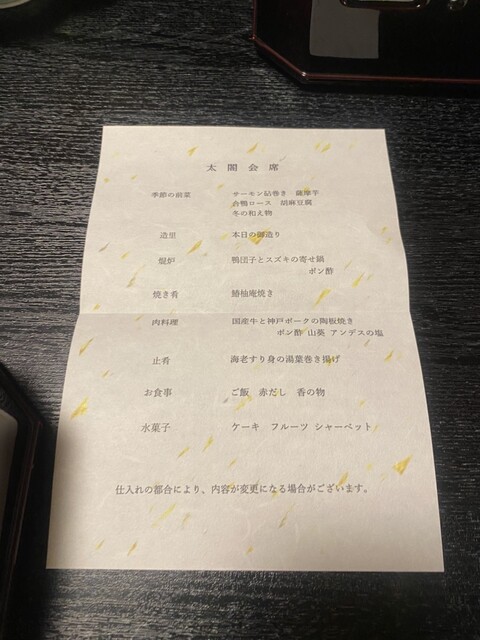 太閤会席
季節の前菜 サーモン砧巻き 薩摩芋
合鴨ロース 胡麻豆腐
冬の和え物
造里 本日の御造り
焜炉 鴨団子とスズキの寄せ鍋
ポン酢
焼き肴 鰆柚庵焼き
肉料理 国産牛と神戸ポークの陶板焼き
ポン酢 山葵 アンデスの塩
止肴 海老すり身の湯葉巻き揚げ
お食事 ご飯 赤だし 香の物
水菓子 ケーキ フルーツ シャーベット
仕入れの都合により、内容が変更になる場合がございます。